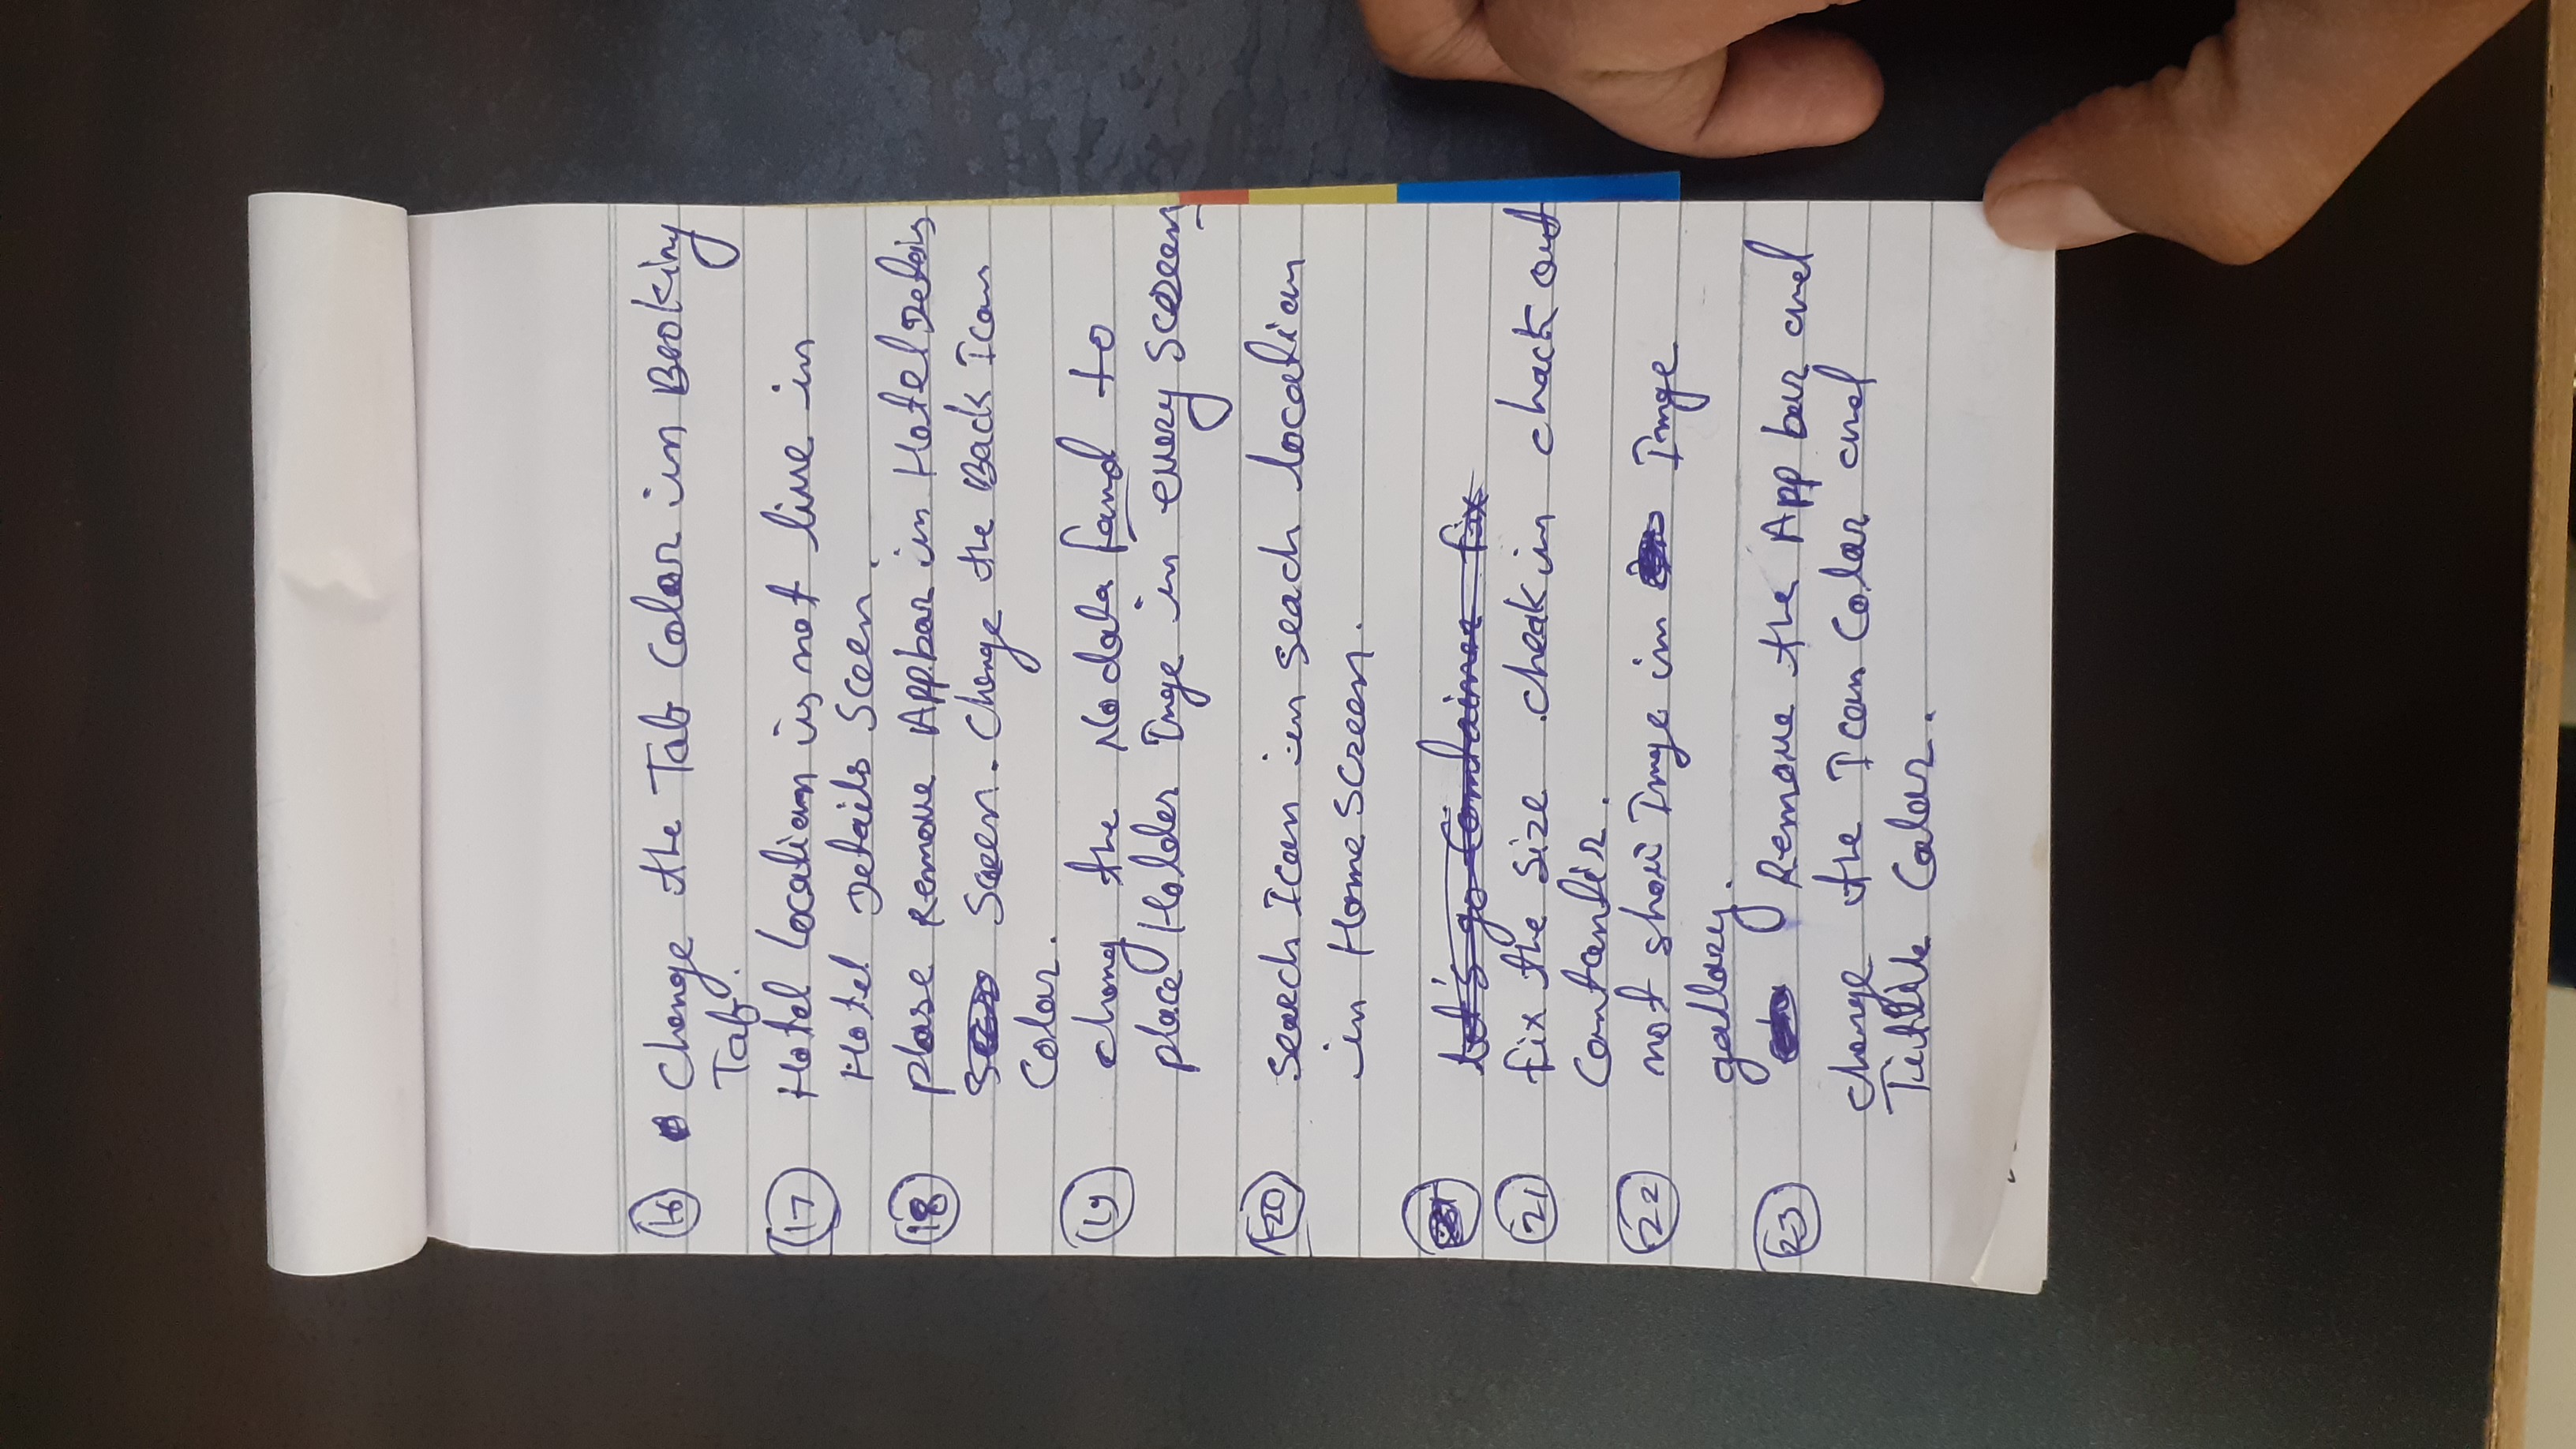 16 Change the Tab Color in Booking
Tab.
17 Hotel Location is not live in
Hotel Details Sceen.
18 plase Remove App.bar in Hotel Detais
Sceen. Change the Back Icon
Color.
19 chang the No data fand to
place Holder Imge in every screen
20 search Icon in seach location
in Home screen.
let's go Container fix
21 fix the size check in chack out
22 not show Imge in Imge
gallary.
23 Remove the App bar and
change the Icon Color and
Color.